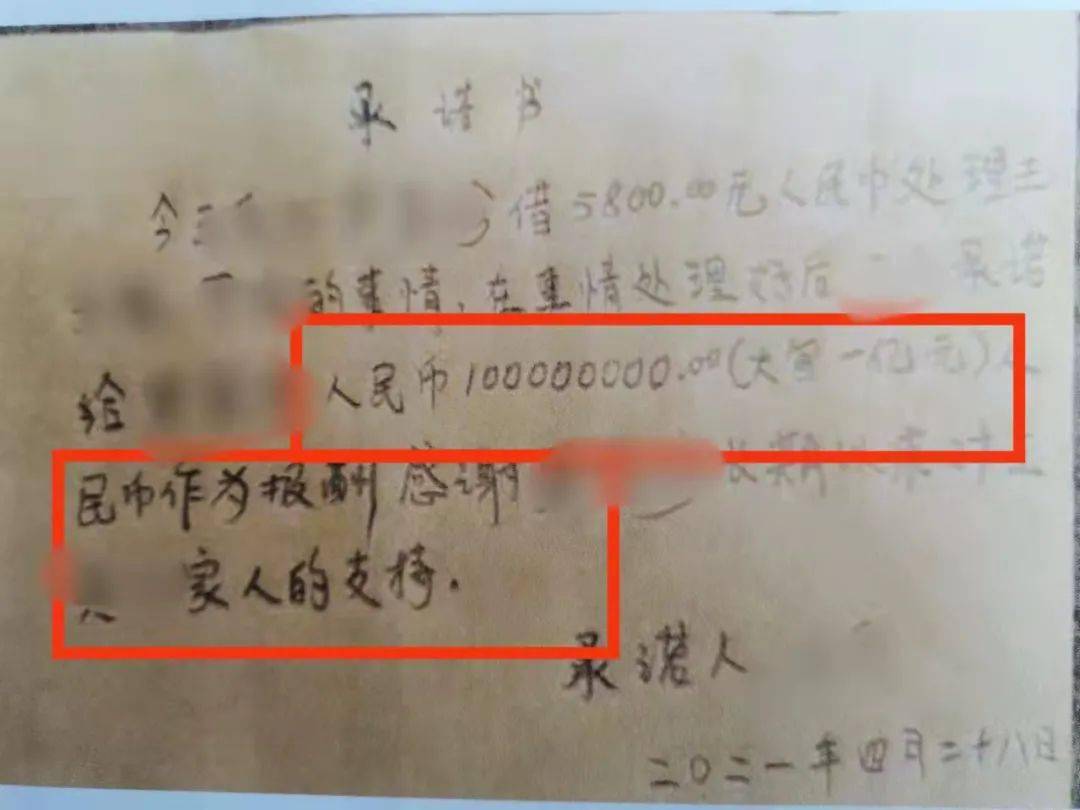 承诺书
今 借5800.00元人民币处理
的事情,在事情处理好后 承诺
给 人民币100000000.00(大写一亿元)人
民币作为报酬感谢 长期以来对
家人的支持.
承诺人
二〇二一年四月二十八日